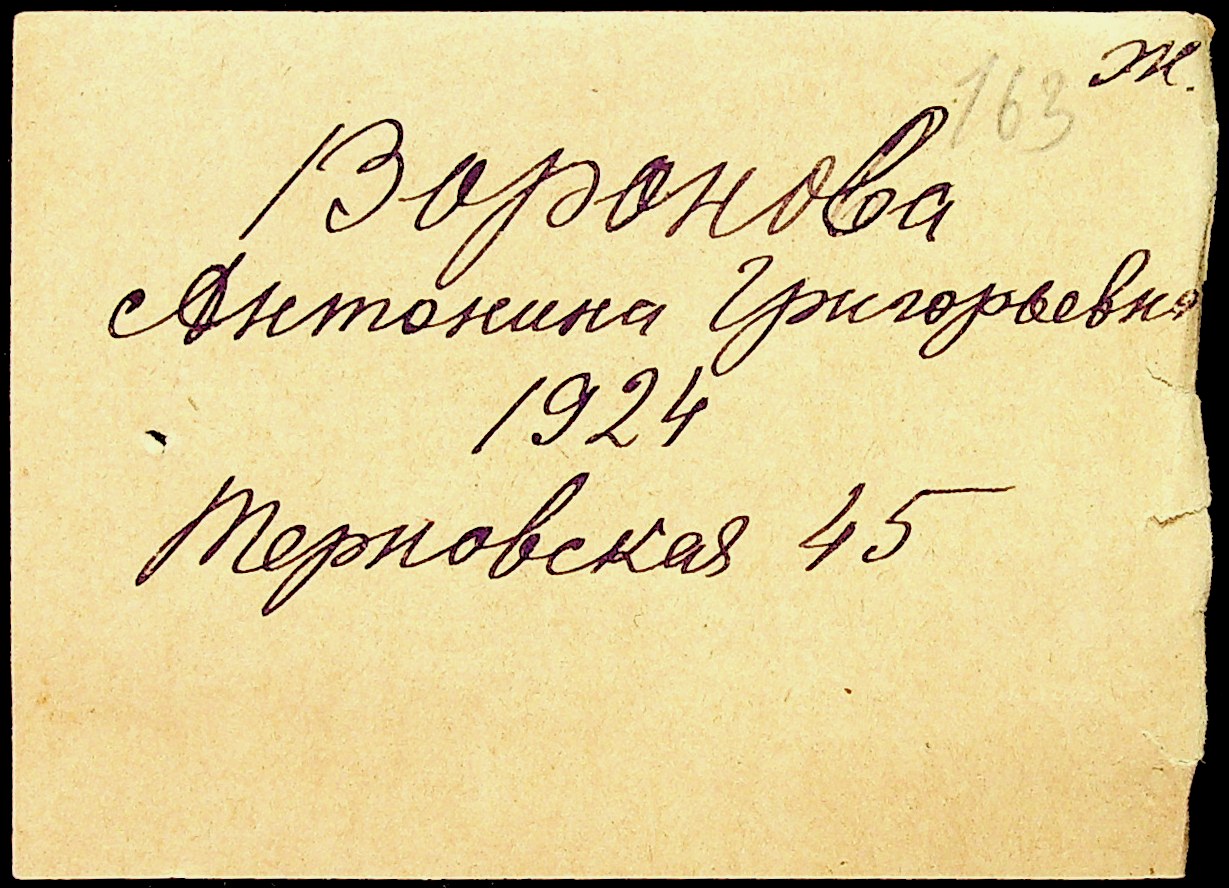 ж.
163
Воронова
Антонина Григорьевна
1924
Терновская 45